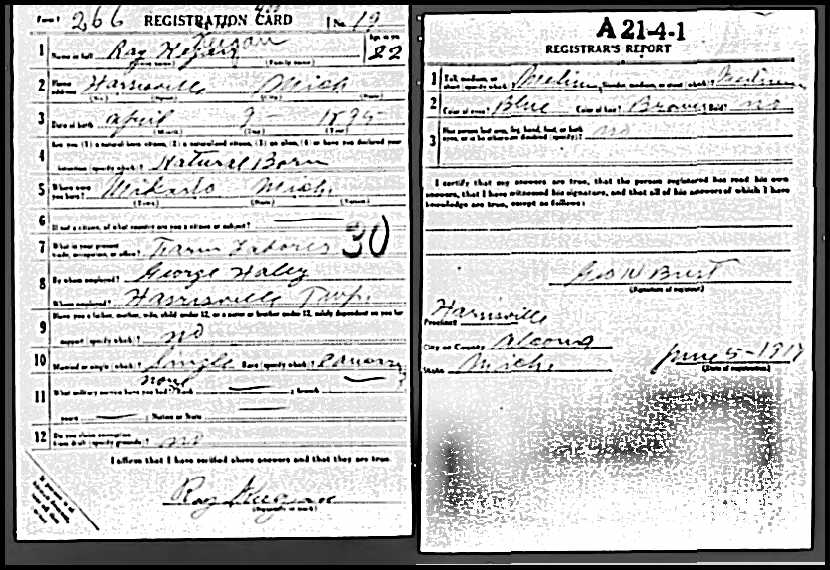 Form 1 266 REGISTRATION CARD No. 19
1 Name in full Ray Age, in yrs. 22
(Given name) (Family name)
2 Home address Harrisville Mich
(No.) (Street) (City) (State)
3 Date of birth April 9 - 1895
(Month) (Day) (Year)
4 Are you (1) a natural born citizen, (2) a naturalized citizen, (3) an alien, (4) or have you declared your
intention (specify which)? Natural Born
5 Where were you born? Mikado Mich
(Town) (State) (Nation)
6 If not a citizen, of what country are you a citizen or subject?
7 What is your present trade, occupation, or office? Farm Laborer 30
8 By whom employed? George Haley
Where employed? Harrisville Twp.
9 Have you a father, mother, wife, child under 12, or a sister or brother under 12, solely dependent on you for
support (specify which)? no
10 Married or single (which)? Single Race (specify which)?
11 What military service have you had? Rank none ; branch
years ; Nation or State
12 Do you claim exemption from draft (specify grounds)? no
I affirm that I have verified above answers and that they are true.
Ray
(Signature or mark)
A 21-4-1
REGISTRAR'S REPORT
1 Tall, medium, or short (specify which)? Medium Slender, medium, or stout (which)? Medium
2 Color of eyes? Blue Color of hair? Brown Bald? no
3 Has person lost arm, leg, hand, foot, or both eyes, or is he otherwise disabled (specify)? no
I certify that my answers are true, that the person registered has read his own
answers, that I have witnessed his signature, and that all of his answers of which I have
knowledge are true, except as follows:
Geo W Burt
(Signature of registrar)
Precinct Harrisville
City or County Alcona
State Mich. June 5-1917
(Date of registration)